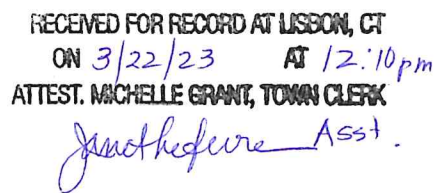 RECEIVED FOR RECORD AT LISBON, CT
ON 3/22/23 AT 12:10 pm
ATTEST. MICHELLE GRANT, TOWN CLERK
Asst.